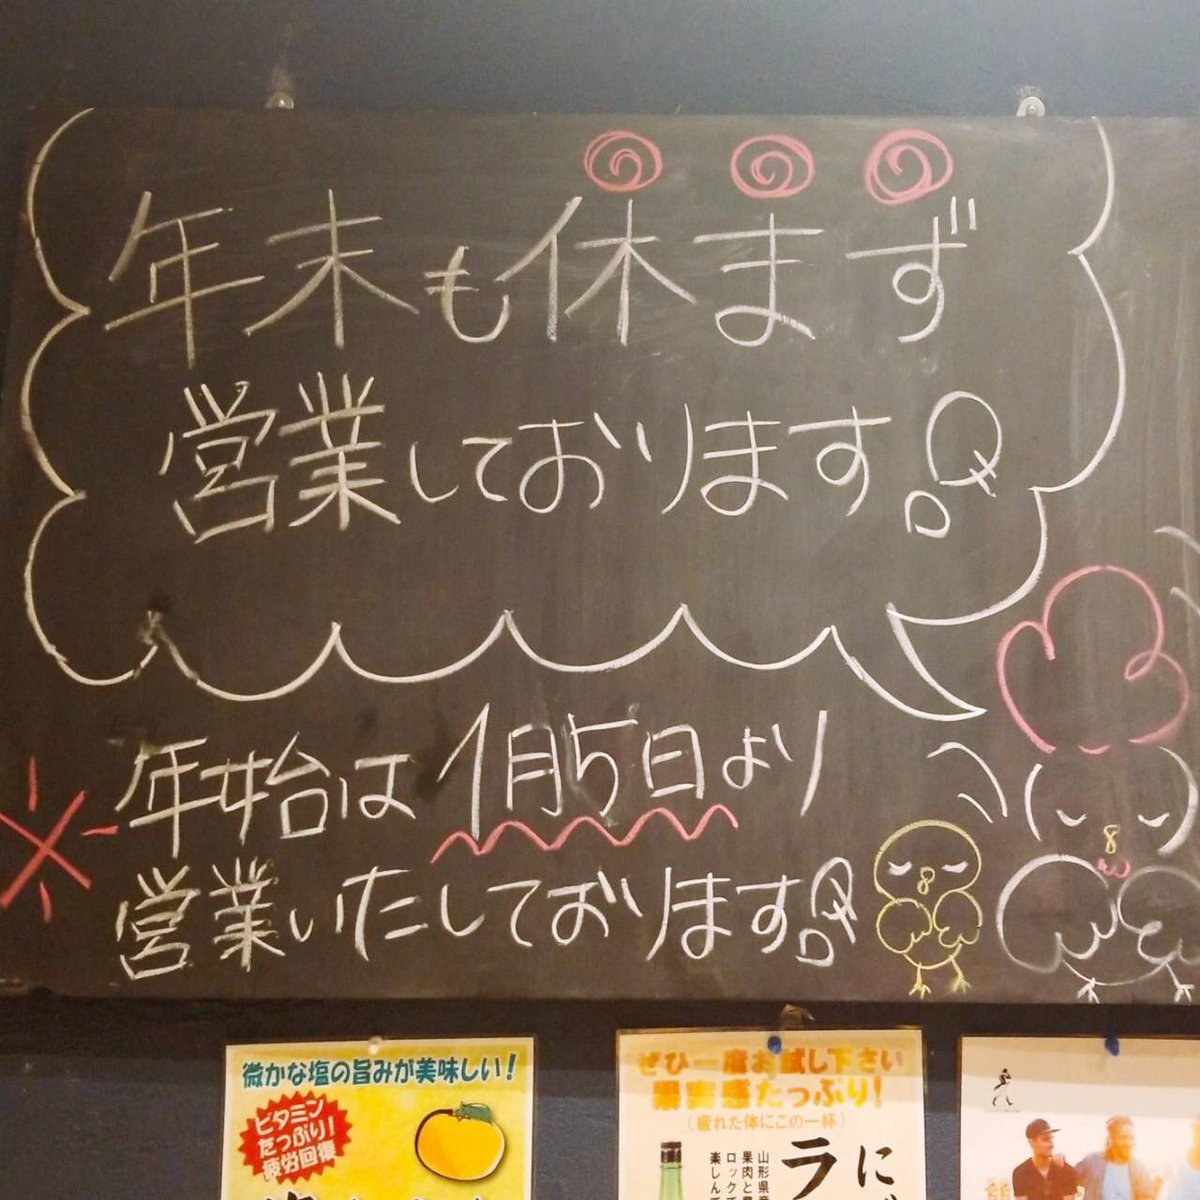 年末も休まず
営業しております。
年始は1月5日より
営業いたしております。
微かな塩の旨みが美味しい！
ビタミン
たっぷり！
疲労回復
ぜひ一度お試し下さい
果実感たっぷり！
（疲れた体にこの一杯）